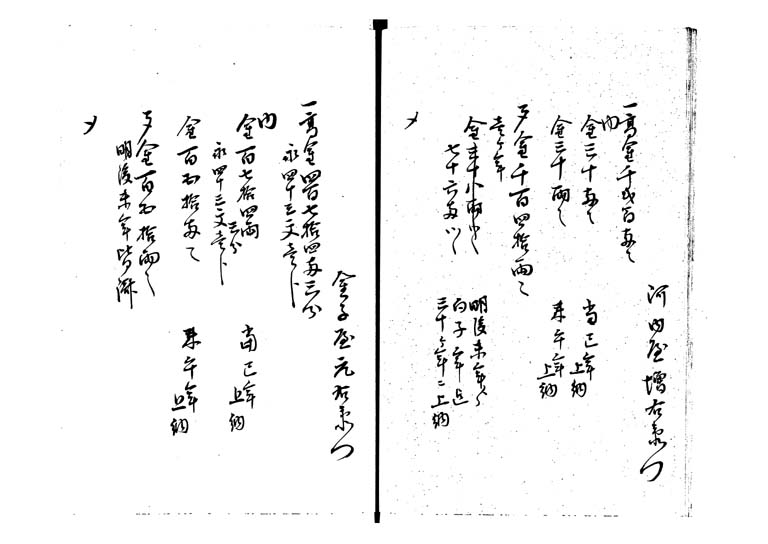 河内屋増右衛門
一高金千弐百両也
内
金三十両也 当巳年上納
金三十両也 来午年上納
〆金千百四拾両也
壱ヶ年
金三十八両ト
七十六両ツヽ
明後未年ゟ
向子年迄
三十ヶ年ニ上納
〆
金子屋元右衛門
一高金四百七拾四両三分
永四十三文壱分
内
金百七拾四両三分
永四十三文壱分
当巳年上納
金百五拾両也 来午年上納
〆金百五拾両也
明後未年皆済
〆